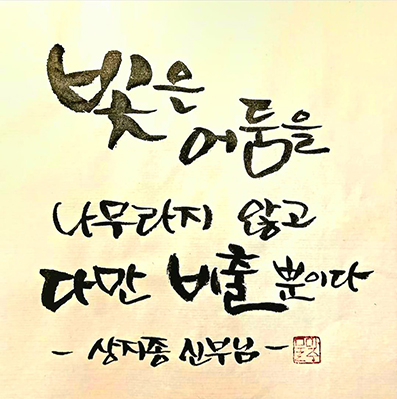 빛은
어둠을
나무라지 않고
다만 비출 뿐이다
- 상지종 신부님 -